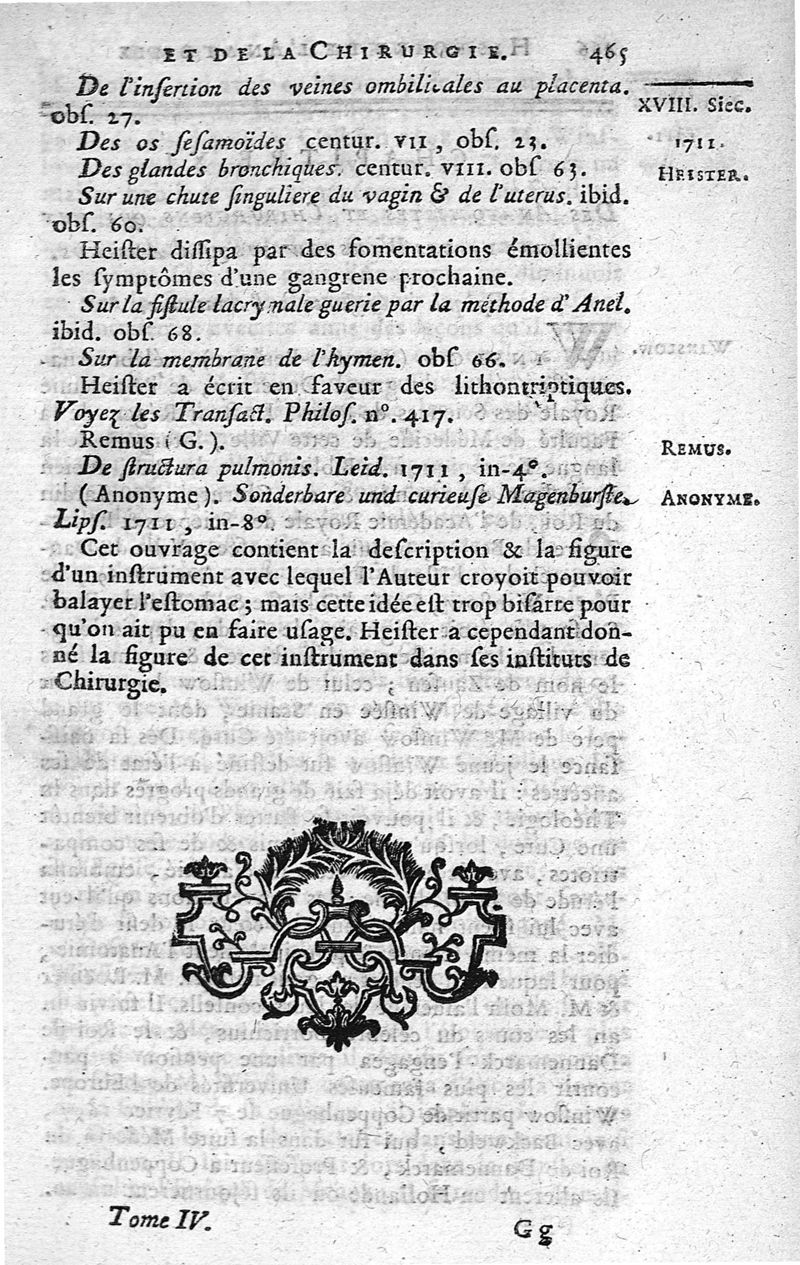 ET DE LA CHIRURGIE. 465
De l'inſertion des veines ombilicales au placenta.
obſ. 27.
XVIII. Siec.
Des os ſeſamoïdes centur. VII, obſ. 23.
1711.
Des glandes bronchiques. centur. VIII. obſ 63.
HEISTER.
Sur une chute ſinguliere du vagin & de l'uterus. ibid.
obſ. 60.
Heiſter diſſipa par des fomentations émollientes
les ſymptômes d'une gangrene prochaine.
Sur la fiſtule lacrymale guerie par la méthode d'Anel.
ibid. obſ. 68.
Sur la membrane de l'hymen. obſ 66.
Heiſter a écrit en faveur des lithontriptiques.
Voyez les Tranſact. Philoſ. n°. 417.
Remus (G.).
REMUS.
De ſtructura pulmonis. Leid. 1711, in-4°.
(Anonyme). Sonderbare und curieuſe Magenburſte.
ANONYME.
Lipſ. 1711, in-8°.
Cet ouvrage contient la deſcription & la figure
d'un inſtrument avec lequel l'Auteur croyoit pouvoir
balayer l'eſtomac; mais cette idée eſt trop biſarre pour
qu'on ait pu en faire uſage. Heiſter a cependant don-
né la figure de cet inſtrument dans ſes inſtituts de
Chirurgie.
Tome IV.
Gg